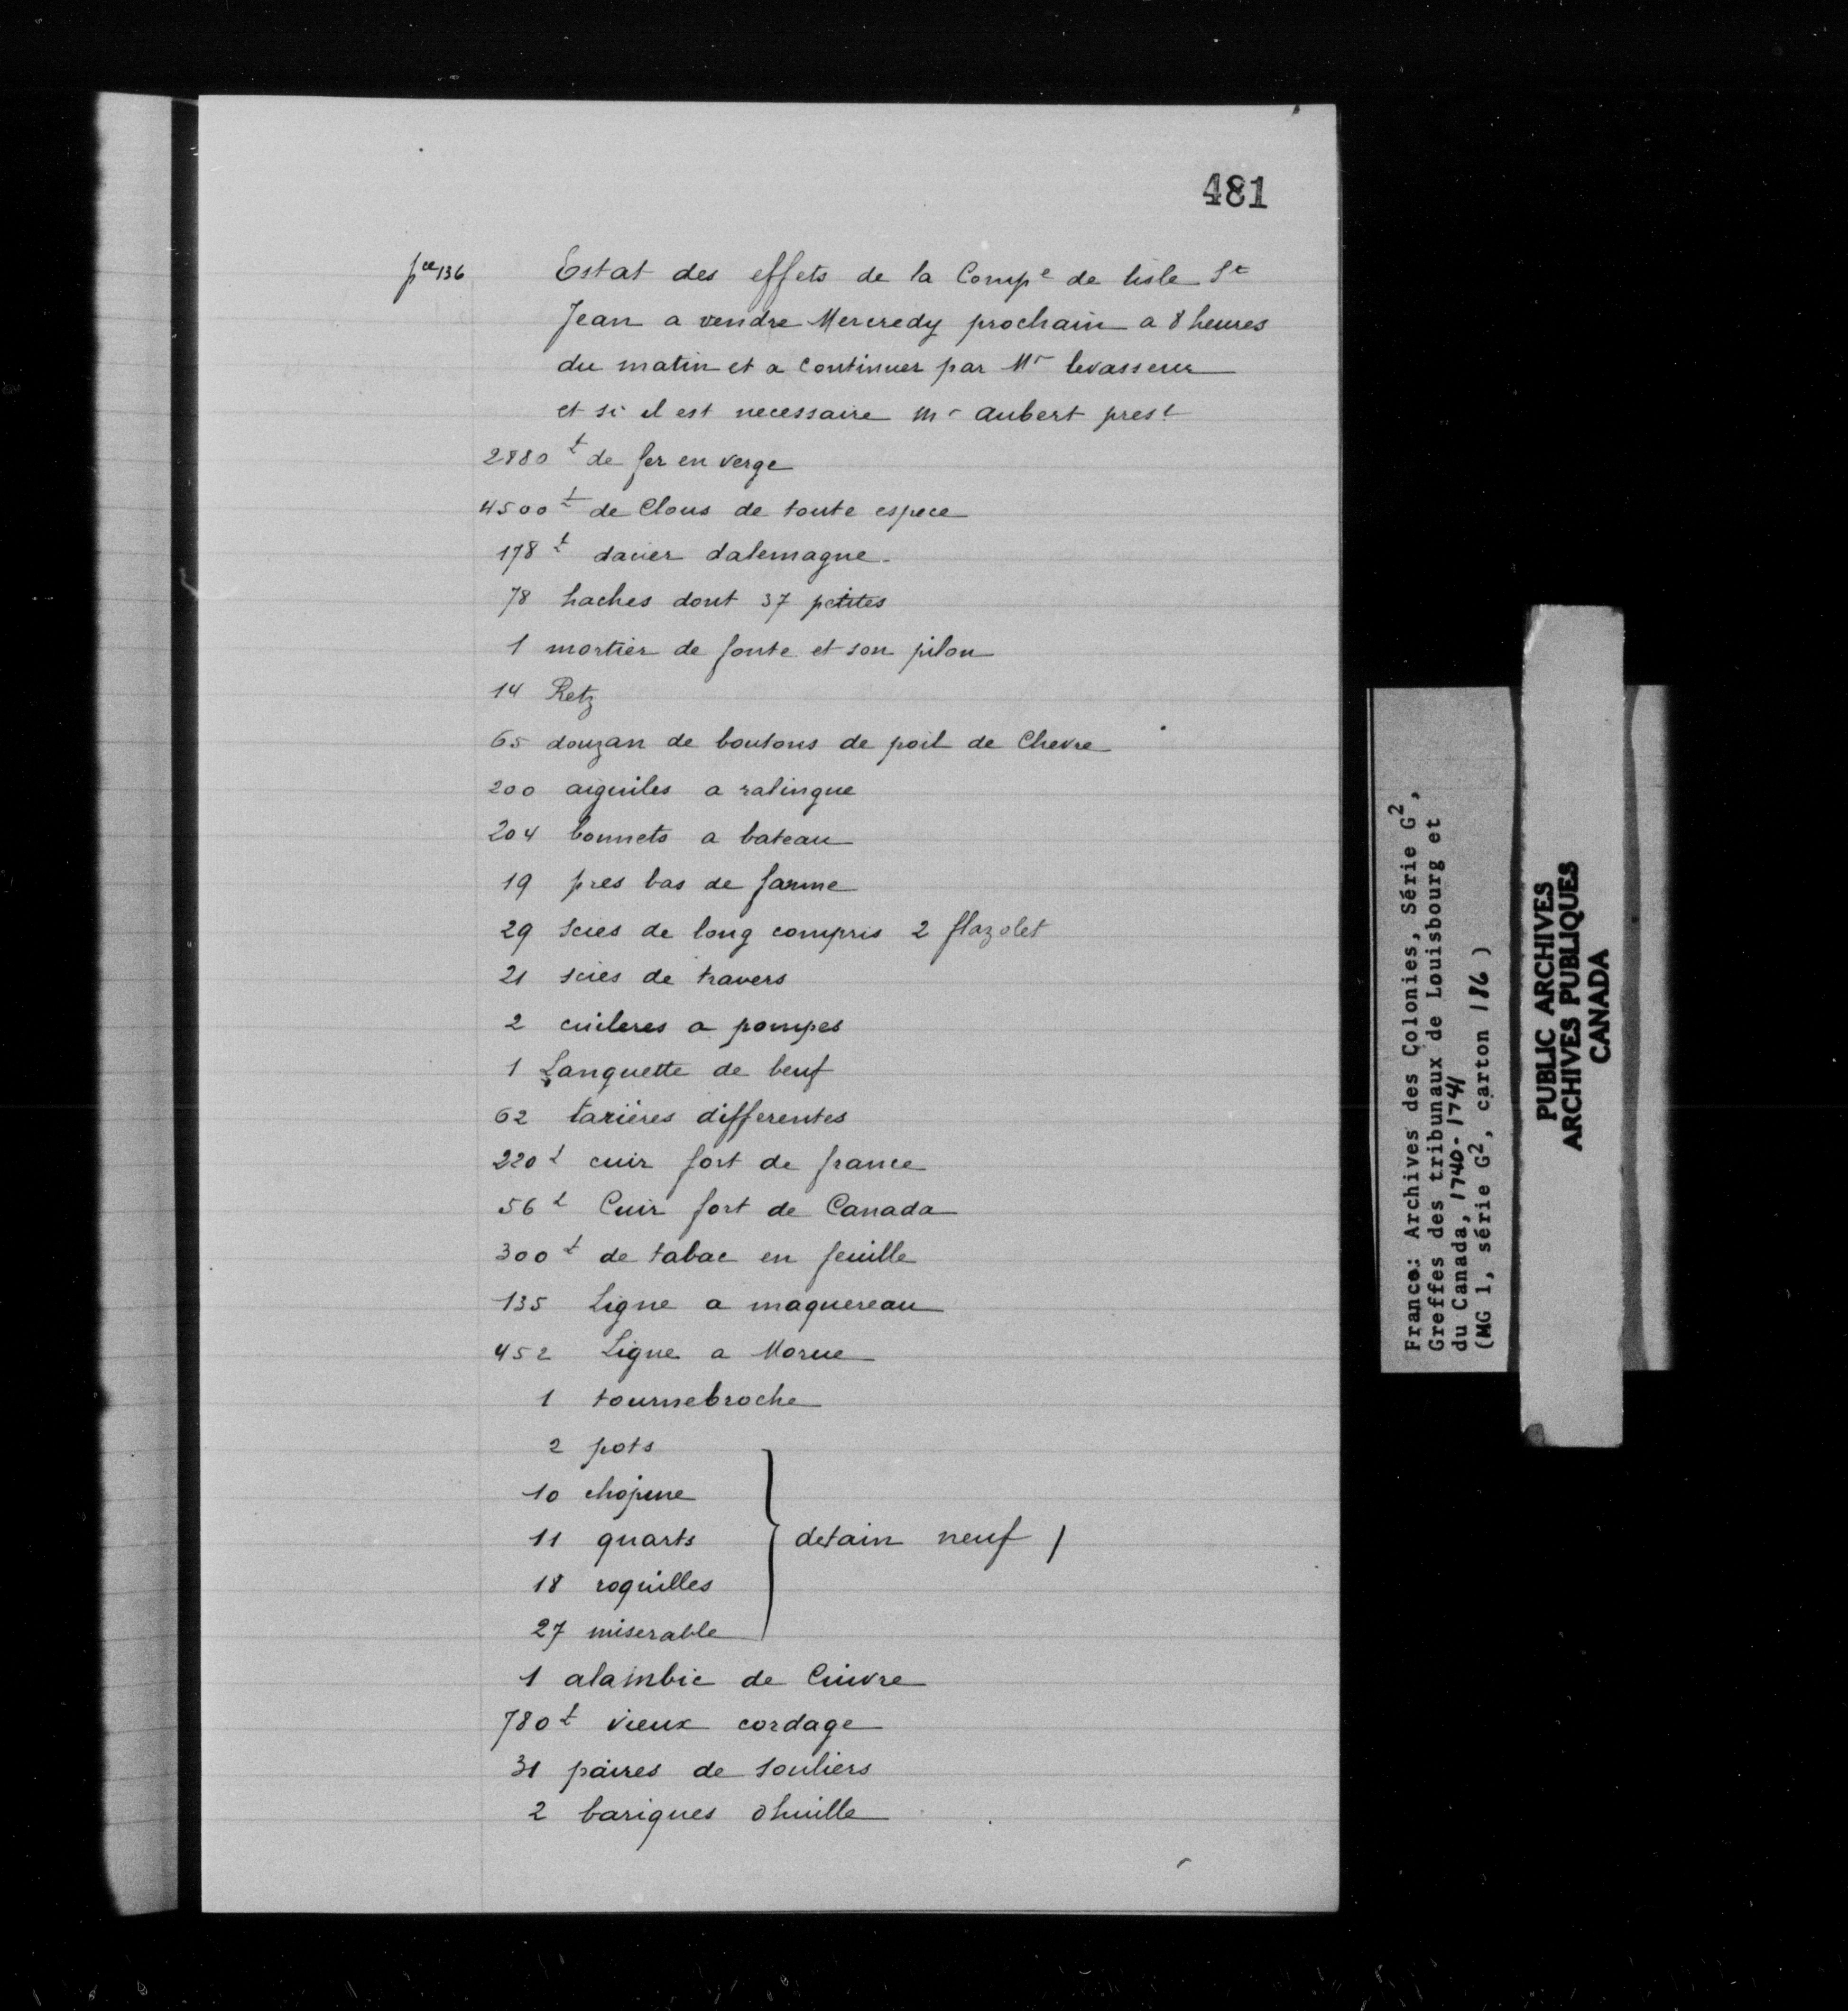 481
pce 136
Estat des effets de la Compe de lisle St
Jean a vendre Mercredy prochain a 8 heures
du matin et a continuer par Mr levasseur
et si il est necessaire mr aubert prest
2880 t de fer en verge
4500 t de Clous de toute espece
178 t dacier dalemagne
78 haches dont 37 petites
1 mortier de fonte et son pilon
14 Retz
65 douzan de boutons de poil de Chevre
200 aiguiles a ralingue
204 bonnets a bateau
19 pres bas de farme
29 scies de long compris 2 flazolet
21 scies de travers
2 cuileres a pompes
1 Languette de beuf
62 tarières differentes
220 t cuir fort de france
56 t Cuir fort de Canada
300 t de tabac en feuille
135 Ligne a maquereau
452 Ligne a Morue
1 tournebroche
2 pots
10 chopine
11 quarts
18 roquilles
27 miserable
detain neuf /
1 alambic de Cuivre
780 t vieux cordage
31 paires de souliers
2 bariques dhuille
France: Archives des Colonies, Série G2,
Greffes des tribunaux de Louisbourg et
du Canada, 1740-1741
(MG 1, série G2, carton 186 )
PUBLIC ARCHIVES
ARCHIVES PUBLIQUES
CANADA